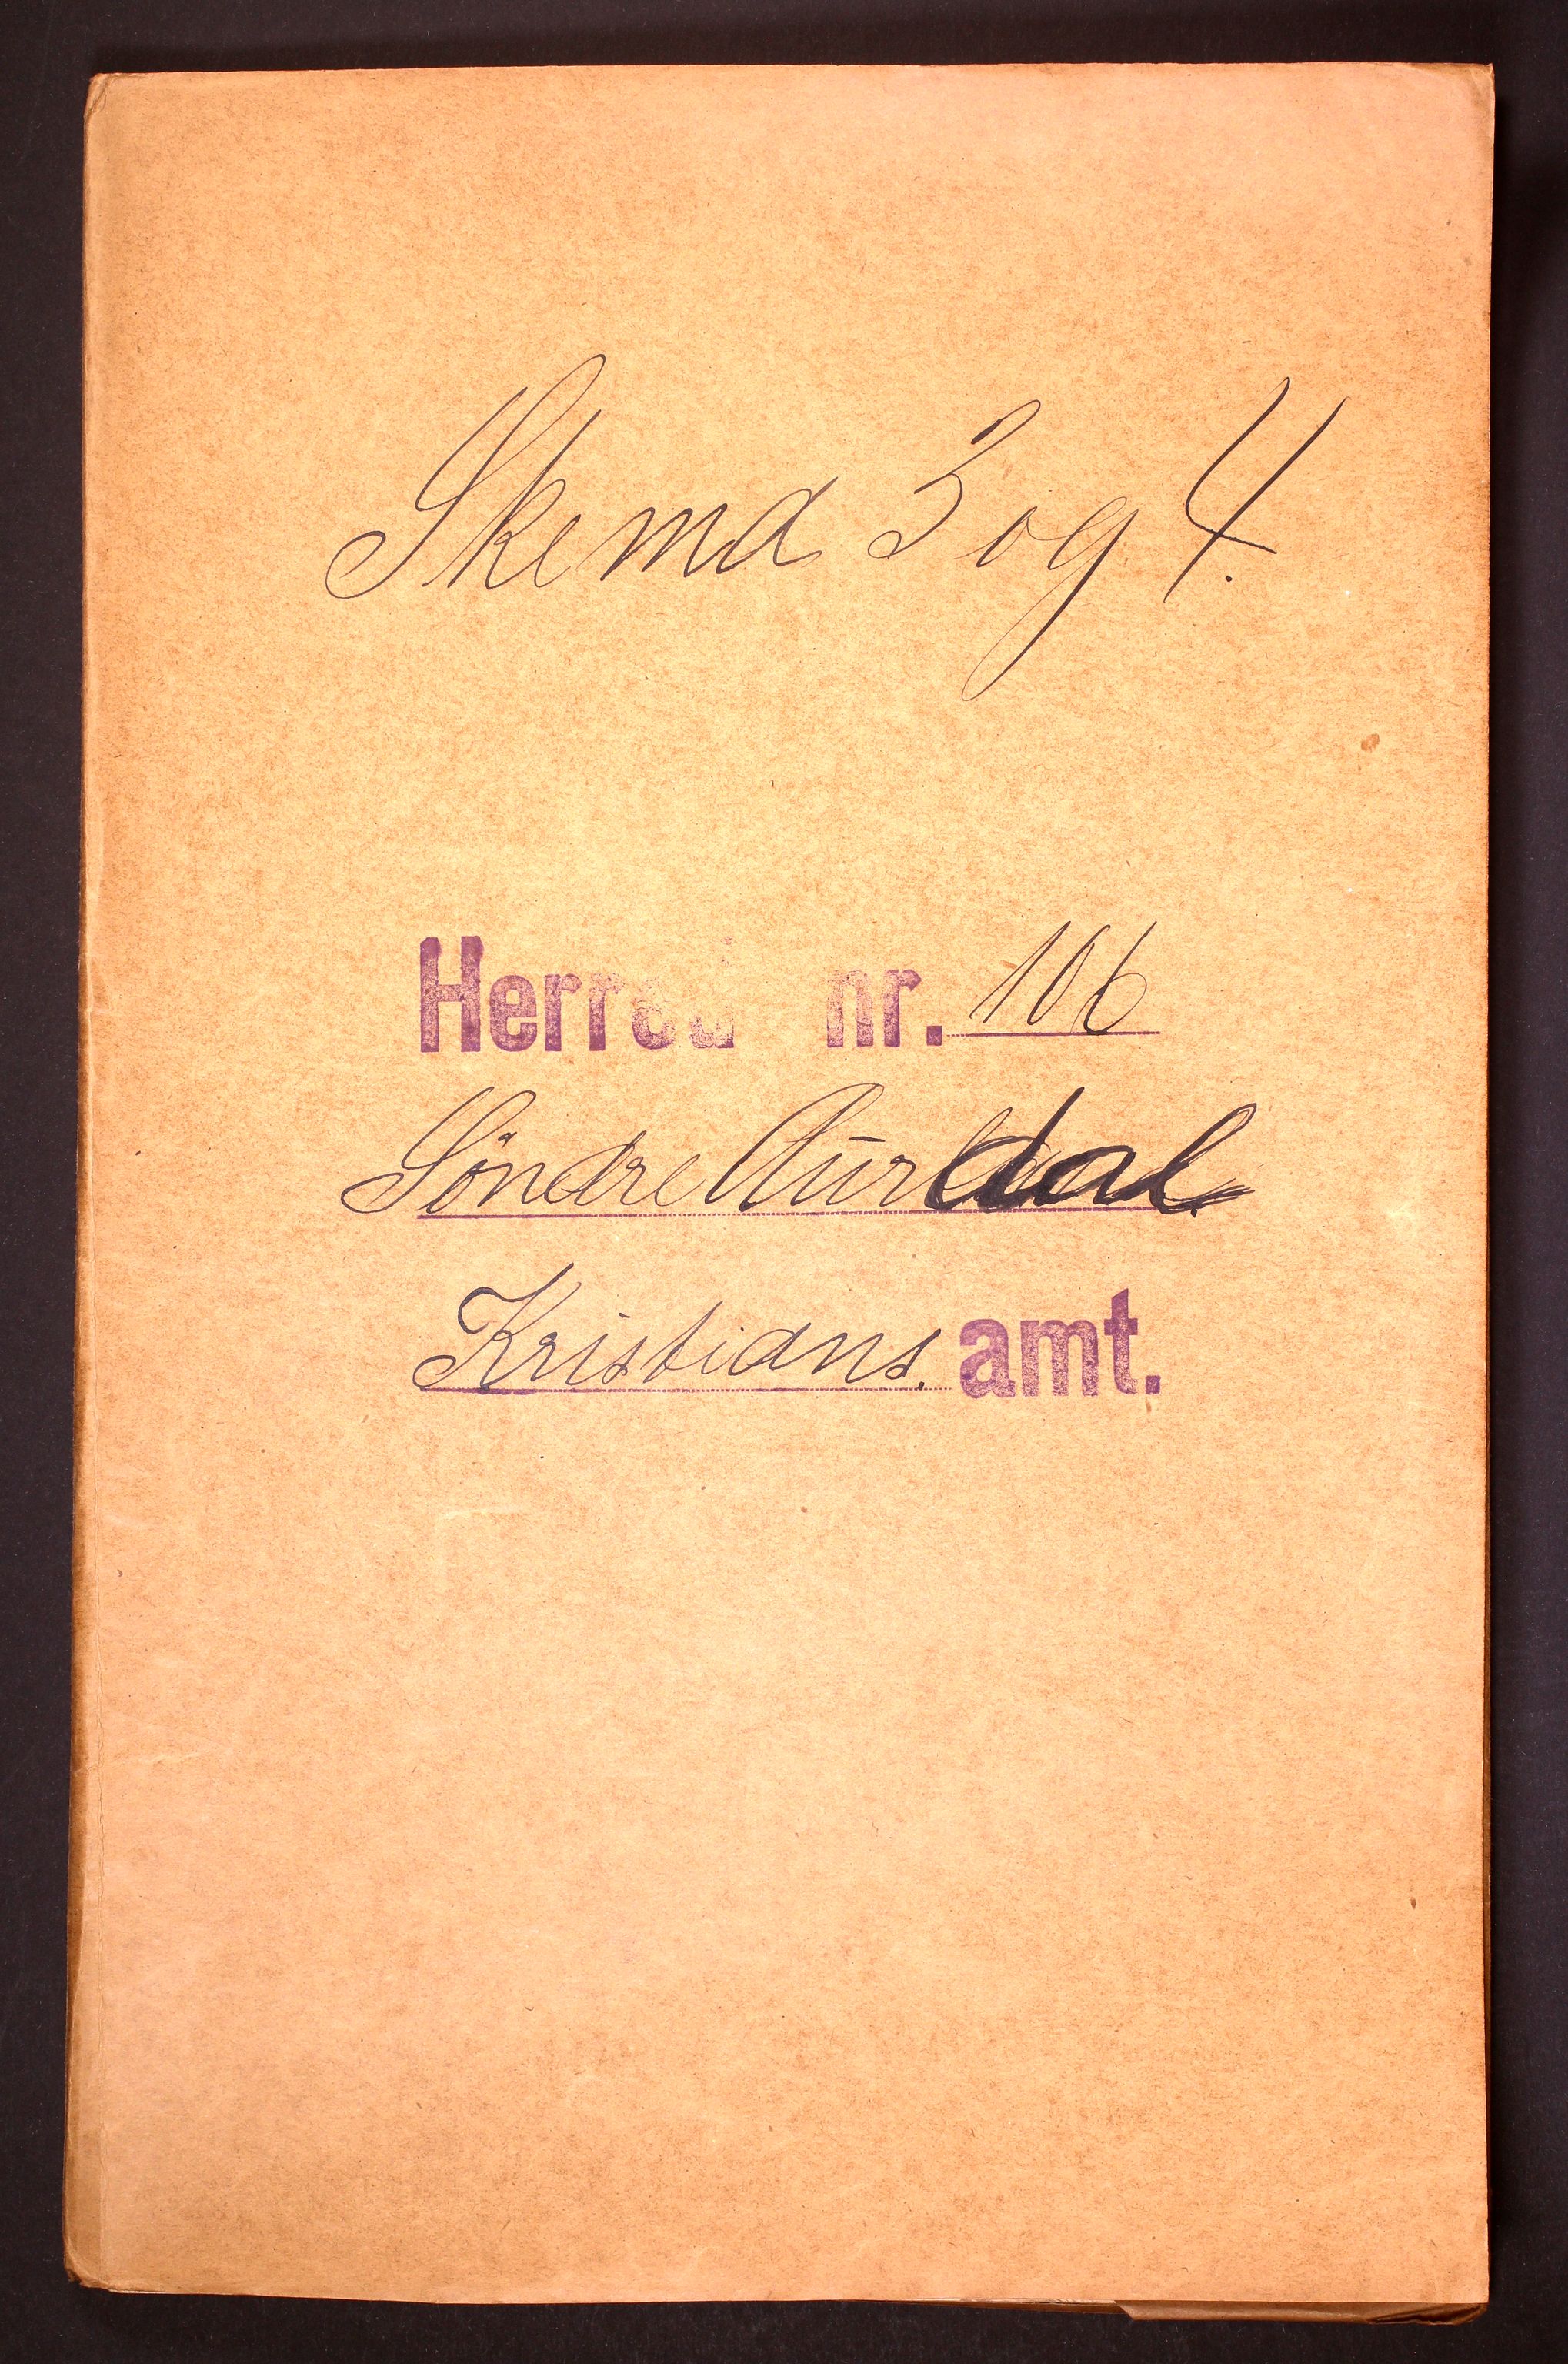 Skema 3 og 4.
Herred nr. 106
Söndre Aurdal.
Kristians. amt.